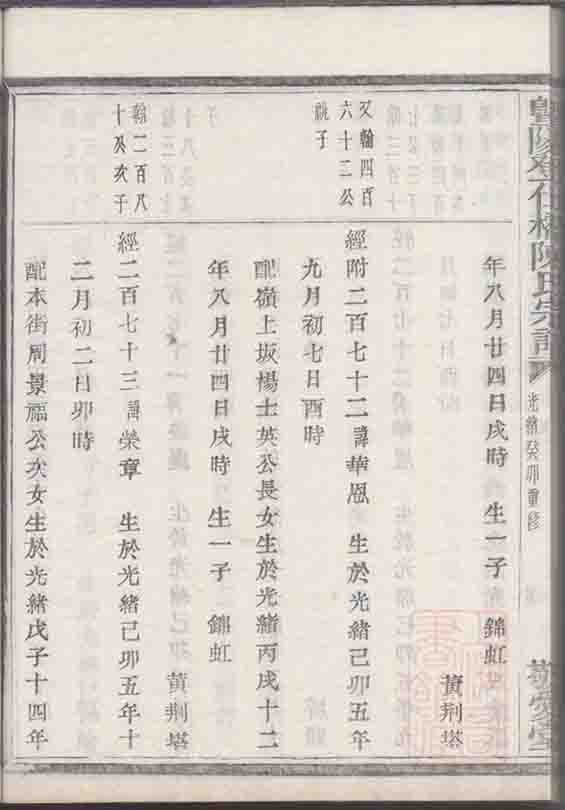 暨陽
陳氏宗譜
光緒癸卯重修
敬愛堂
年八月廿四日戌時 生一子 錦虹
黄荆塔
又翰四百
六十二公
祧子
經附二百七十二諱華恩 生於光緒己卯五年
九月初七日酉時
配嶺上坂楊士英公長女生於光緒丙戌十二
年八月廿四日戌時 生一子 錦虹
黄荆塔
翰二百八
十癸次子
經二百七十三諱榮章 生於光緒己卯五年十
二月初二日卯時
配本街周景福公次女生於光緒戊子十四年